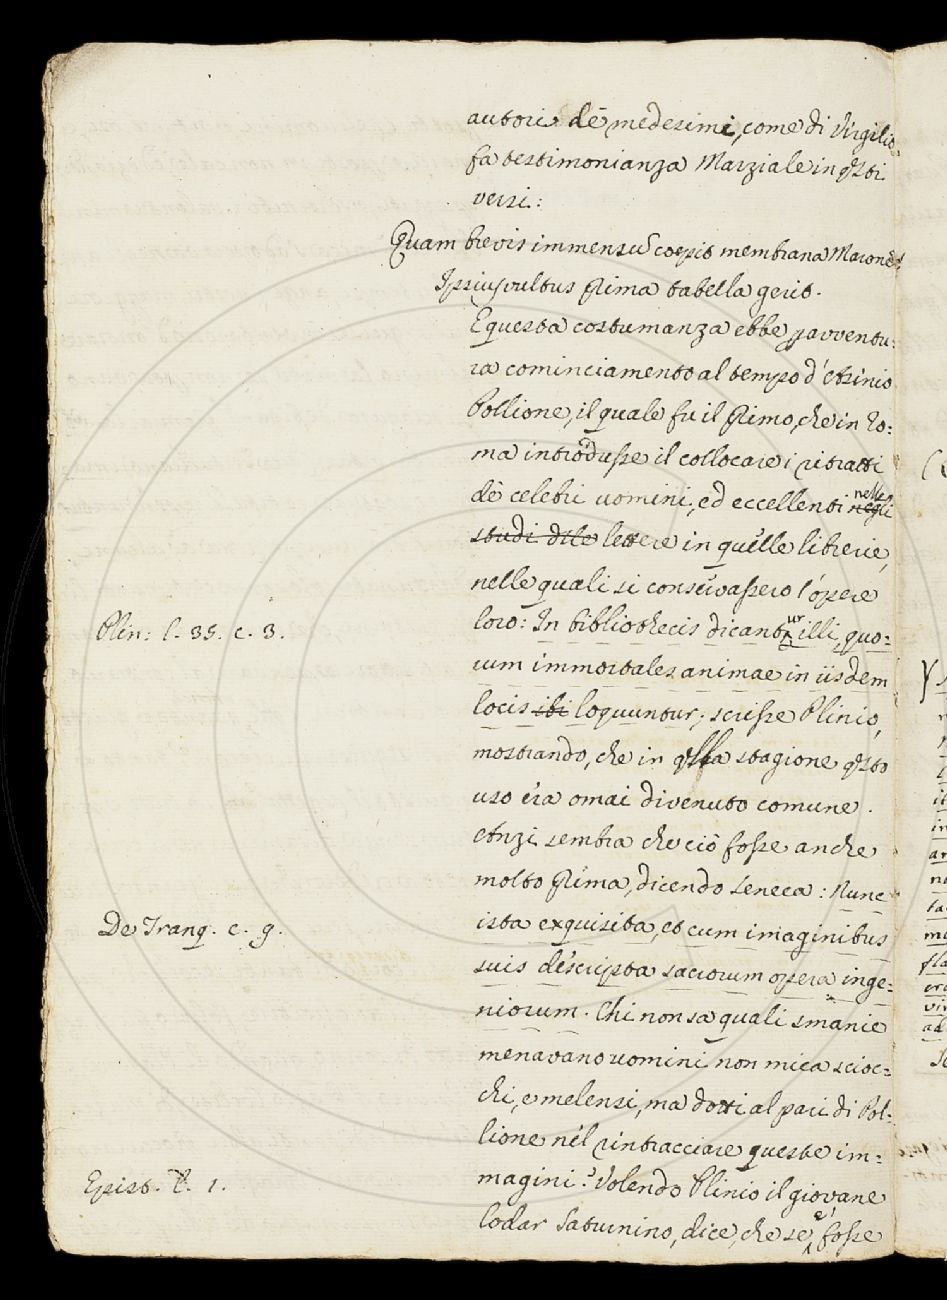 autori dè medesimi, come di Virgilio
fa testimonianza Marziale in q̃sti
versi:
Quam brevis immensũ coepit membrana Maronẽ!
Ipsius vultus prima tabella gerit.
E questa costumanza ebbe p avventu:
ra cominciamento al tempo d'Asinio
Pollione, il quale fu il primo, che in Ro:
ma introdusse il collocare i ritratti
dè celebri uomini, ed eccellenti negli nelle
studi dile lettere in quelle librerie,
nelle quali si conservassero l'opere
Plin: l. 35. c. 3.
loro: In bibliothecis dicantur illi, quo:
rum immortales animae in iisdem
locis ibi loquuntur; scrisse Plinio,
mostrando, che in q̃lla stagione q̃sto
uso era omai divenuto comune.
Anzi sembra che ciò fosse anche
molto prima, dicendo Seneca: Nunc
De Tranq. c. 9.
ista exquisita, et cum imaginibus
suis descripta sacrorum opera inge:
niorum. Chi non sa quali smanie
menavano uomini non mica scioc:
chi, e melensi, ma dotti al pari di Pol:
lione nel rintracciare queste im:
Epist. l. 1.
magini? Volendo Plinio il giovane
lodar Saturnino, dice, che se e' fosse